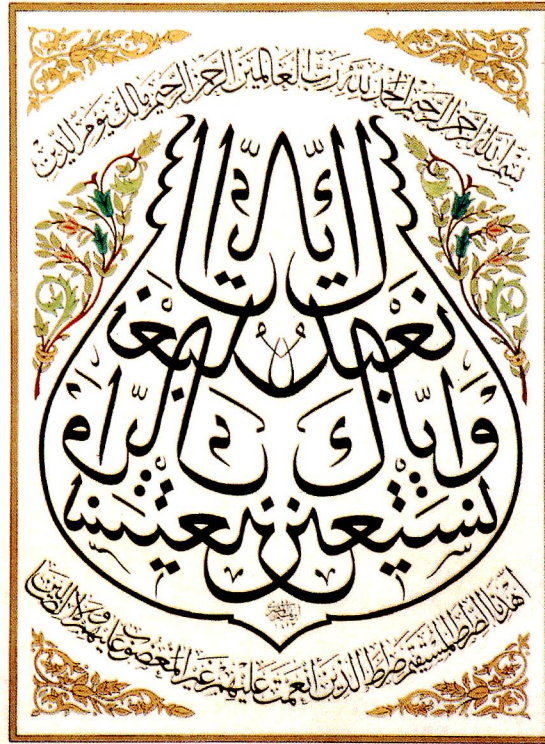 بسم الله الرحمن الرحيم الحمد لله رب العالمين الرحمن الرحيم مالك يوم الدين
إياك
نعبد
وإياك
نستعين
اهدنا الصراط المستقيم صراط الذين أنعمت عليهم غير المغضوب عليهم ولا الضالين